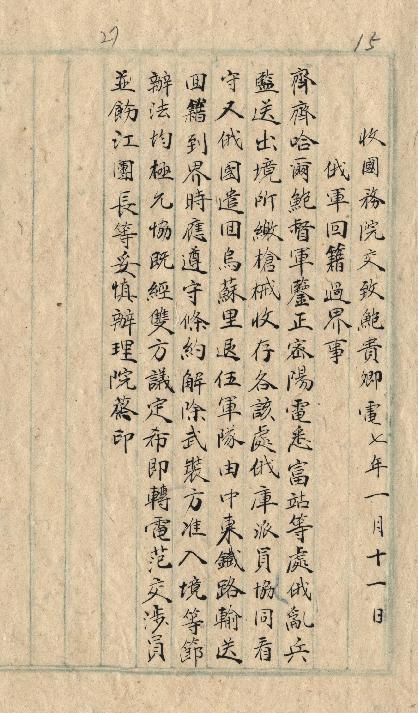 27
15
收國務院交致鮑貴卿電七年一月十一日
俄軍回籍過界事
齊齊哈爾鮑督軍鑒正密陽電悉富站等處俄亂兵
監送出境所繳槍械收存各該處俄庫派員協同看
守又俄國遣回烏蘇里退伍軍隊由中東鐵路輸送
回籍到界時應遵守條約解除武裝方准入境等節
辦法均極允協既經雙方議定希即轉電范交涉員
並飭江團長等妥慎辦理院蒸印